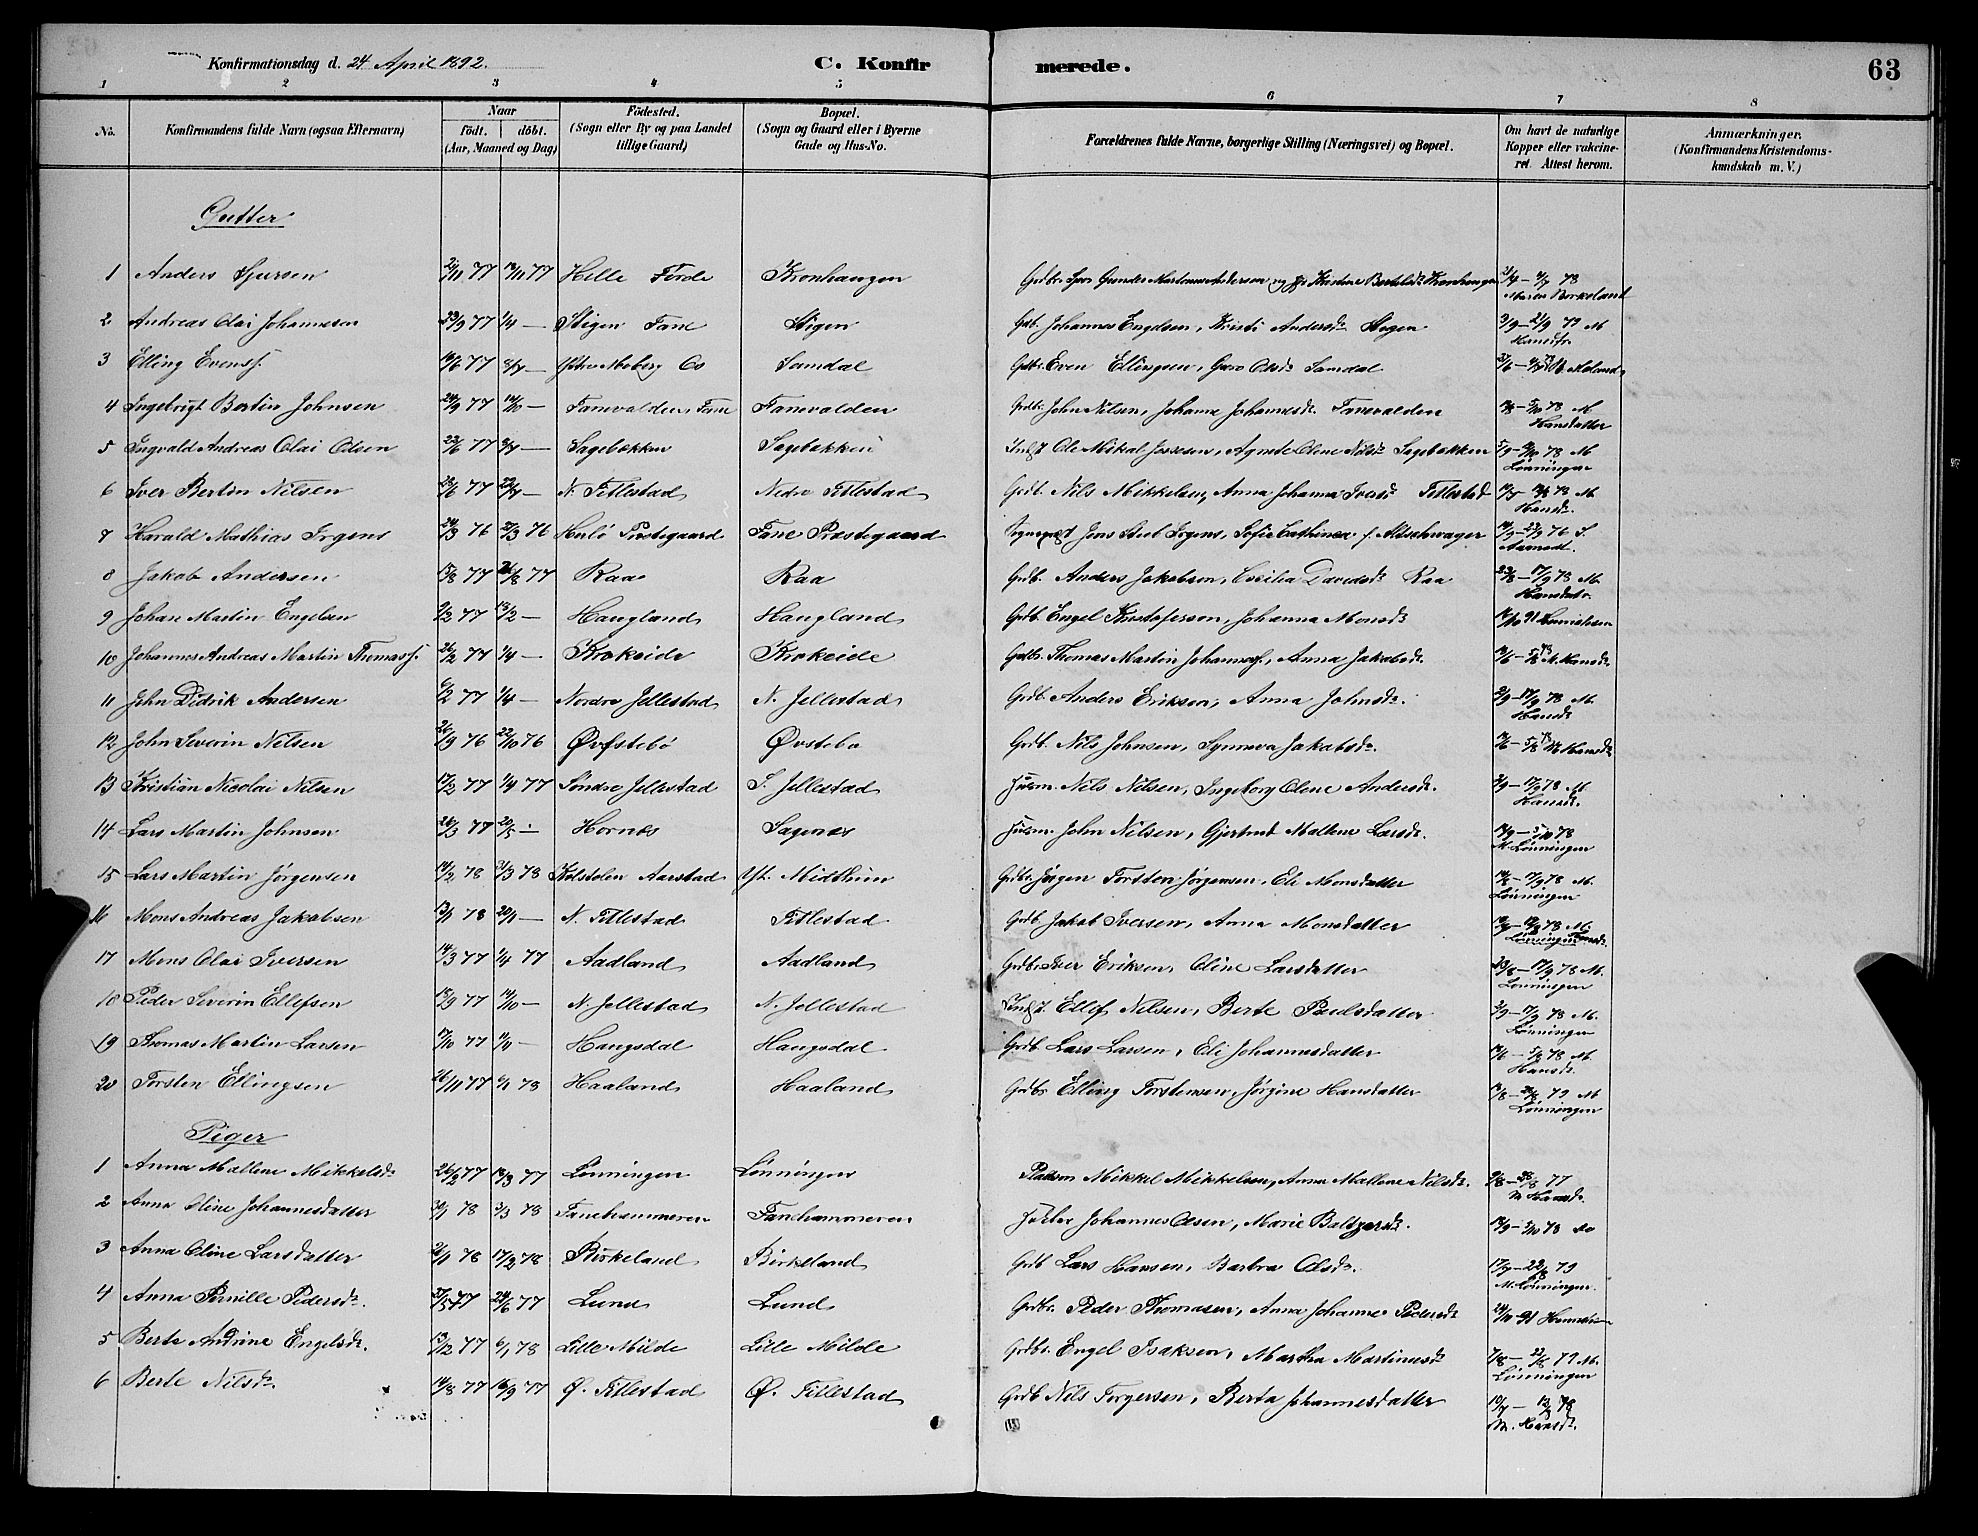 Konfirmationsdag d. 24 April 1892.
C. Konfirmerede.
63
1 2 3 4 5 6 7 8
No. Konfirmandens fulde Navn (ogsaa Efternavn) Naar födt. döbt. (Aar, Maaned og Dag) Födested. (Sogn eller By og paa Landet tillige Gaard) Bopæl. (Sogn og Gaard eller i Byerne Gade og Hus-No. Forældrenes fulde Navne, borgerlige Stilling (Næringsvei) og Bopæl. Om havt de naturlige Kopper eller vakcineret. Attest herom. Anmærkninger. (Konfirmandens Kristendomskundskab m. V.)
Gutter
1 Anders Sjursen 77 77 Helle Förde Kronhaugen 78
2 Andreas Olai Johannesen 23/9 77 1/4 — Stigen Fane Stigen Gdb. Johannes Engelsen, Kristi Andersd. Stegen 79 M
3 Elling Evens. 77 Moberg Os Samdal Gdbr. Even Ellingsen, Guro Olsd. Samdal
4 Ingebrigt Bertin Johnsen 77 Fanevalden, Fane Fanevalden Grdbr. John Nilsen, Johanna Johannesd. Fanevalden 5/10 78 M Hansdatter
5 Ingvald Andreas Olai Olsen 77 Sagebakken Sagebakken Ole Mikal Olene Nilsd. Sagebakken 78 M Lönningen
6 Iver Bertin Nilsen 77 N. Titlestad Nedre Titlestad Grdb. Nils Mikkelsen, Anna Johanna Iversd. Titlestad 78 M. Hansd.
7 Harald Mathias Irgens 24/3 76 27/3 76 Herlö Præstegaard Fane Præstegaard Sognepræst Jens Stub Irgens, Sofie Cathinca f. Altschwager 76 S.
8 Jakob Andersen 77 77 Raa Raa Grdb. Anders Jakobsen, Cecilia Davidsd. Raa 17/9 78 M. Hansdtr.
9 Johan Martin Engelsen 9/2 77 13/2 — Haugland Haugland Grdb. Engel Kristofersen, Johanna Monsd. 91
10 Johannes Andreas Martin Thomass. 26/2 77 1/4 — Krokeide Krokeide Gdbr. Thomas Martin Johanness., Anna Jakobsd. M. Hansd.
11 John Didrik Andersen 6/2 77 1/4 — Nordre Jellestad N. Jellestad Grdb. Anders Eriksen, Anna Johnsd. 2/9 — 17/9 78 M. Hansd.
12 John Severin Nilsen 26/9 76 22/10 76 Øvstebö Øvstebö Grdb. Nils Johnsen, Synneva Jakobsd. M. Hansd.
13 Kristian Nicolai Nilsen 17/2 77 1/4 77 Söndre Jellestad S. Jellestad Husm. Nils Nilsen, Ingeborg Olene Andersd. 2/9 — 17/9 78 M. Hansd.
14 Lars Martin Johnsen 26/3 77 20/5 — Hornæs Sagenæs Husm. John Nilsen, Gjertrud Mallene Larsd. 5/10 78 M. Lönningen
15 Lars Martin Jörgensen 14/2 78 31/3 78 Kalstolen Aarstad Yt. Midthun Grdbr. Jörgen Torsten Jörgensen, Eli Monsdatter 17/9 78 M. Lönningen
16 Mons Andreas Jakobsen 13/1 78 20/1 — N. Titlestad Titlestad Grdb. Jakob Iversen, Anna Monsdatter 78 M. Lönningen
17 Mons Olai Iversen 14/3 77 1/4 77 Aadland Aadland Grdbr. Iver Eriksen, Oline Larsdatter 23/8 — 17/9 78 M. Lönningen
18 Peder Severin Ellefsen 18/9 77 14/10 — N. Jellestad N. Jellestad Ellef Nilsen, Berte Paulsdatter 2/9 — 17/9 78 M. Lönningen
19 Thomas Martin Larsen 17/10 77 — Haugsdal Haugsdal Grdb. Lars Larsen, Eli Johannesdatter 78 M. Hansd.
20 Torsten Ellingsen 26/11 77 6/1 78 Haaland Haaland Grdbr. Elling Torstensen, Jörgine Hansdatter 79 M Lönningen
Piger
1 Anna Mallene Mikkelsd. 26/2 77 18/3 77 Lönningen Lönningen Pladsm Mikkel Mikkelsen, Anna Mallene Nilsd. 77 M Hansd.
2 Anna Oline Johannesdatter 30/1 78 3/3 78 Fanehammeren Fanehammeren Johannes Olsen, Marie Baltzersd. 78
3 Anna Oline Larsdatter 26/1 78 17/2 78 Birkeland Birkeland Grdb Lars Hansen, Barbra Olsd. 79 M. Lönningen
4 Anna Pernille Pedersd. 27/5 77 24/6 77 Lund Lund Grdbr. Peder Thomasen, Anna Johanne Pedersd. 91
5 Berte Andrine Engelsd. 13/12 77 6/1 78 Lille Milde Lille Milde Grdbr. Engel Isaksen, Martha Martinusd. 7/8 — 22/8 79 M. Lönningen
6 Berte Nilsd. 14/8 77 16/9 77 Ø. Titlestad Ø. Titlestad Grdb Nils Torgersen, Berta Johannesdatter 78 M. Hansd.